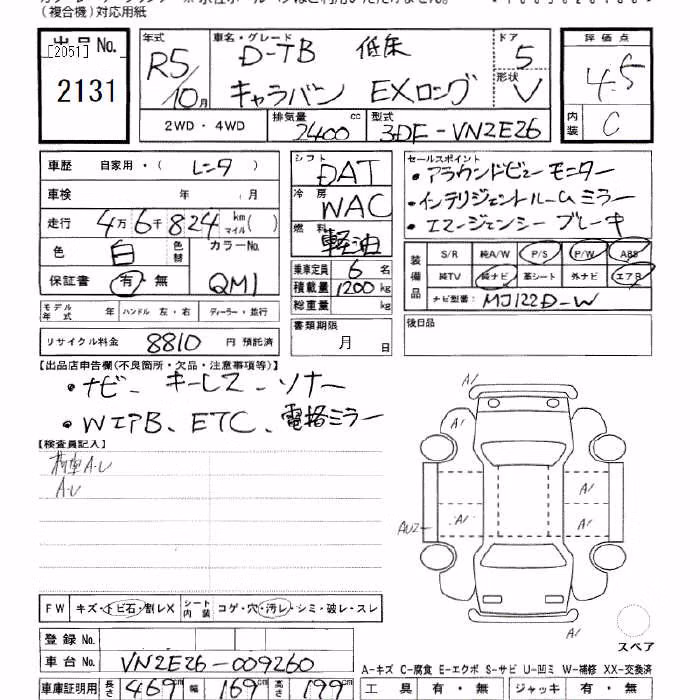 (複合機)対応用紙
出品No.
[2051]
2131
年式 R5/10月
車名・グレード D-TB 低床
キャラバン EXロング
ドア 5
形状 V
評価点 4.5
内装 C
2WD・4WD
排気量 2400 cc
型式 3DF-VN2E26
車歴 自家用・( レンタ )
車検 年 月
走行 4万6千824 km マイル( )
色 白 色替 カラーNo.
保証書 有・無 QM1
モデル年式 年 ハンドル 左・右 ディーラー・並行
リサイクル料金 8810 円 預託済
シフト DAT
冷房 WAC
燃料 軽油
乗車定員 6 名
積載量 1200 kg
総重量 kg
書類期限 月 日
セールスポイント
・アラウンドビューモニター
・インテリジェントルームミラー
・エマージェンシーブレーキ
装備品 S/R 純A/W P/S P/W ABS
純TV 純ナビ 革シート 外ナビ エアB
ナビ型番: MJ122D-W
後日品
【出品店申告欄(不良箇所・欠品・注意事項等)】
・ナビ、キーレス、ソナー
・WエアB、ETC、電格ミラー
【検査員記入】
A・U
A・U
A1
A1
A1
A1
A1
AU2
A1
スペア
FW キズ・トビ石・割レX シート内装 コゲ・穴・汚レ・シミ・破レ・スレ
登録No.
車台No. VN2E26-009260
A-キズ C-腐食 E-エクボ S-サビ U-凹ミ W-補修 XX-交換済
車庫証明用 長さ 469 cm 幅 169 cm 高さ 199 cm
工具 有・無 ジャッキ 有・無